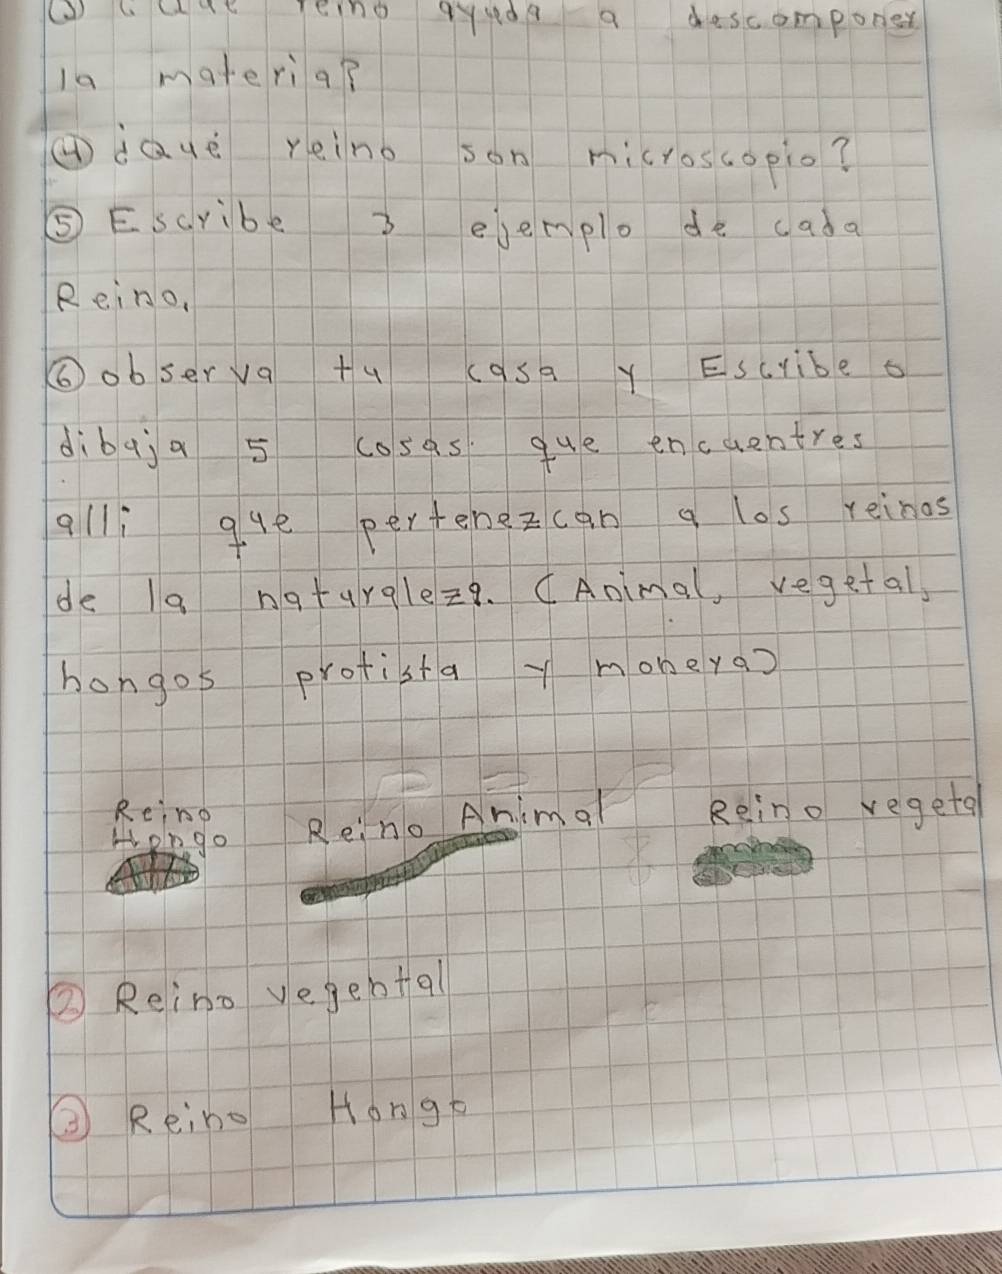 ③ ¿Qué reino ayuda a descomponer
la materia?
④ ¿Qué reino son microscopio?
⑤ Escribe 3 ejemplo de cada
Reino.
⑥ observa tu casa y Escribe o
dibuja 5 cosas que encuentres
alli que pertenezcan a los reinos
de la naturaleza. (Animal, vegetal,
hongos protista y monera)
Reino Hongo
Reino Animal
Reino vegetal
② Reino vegental
③ Reino Hongo